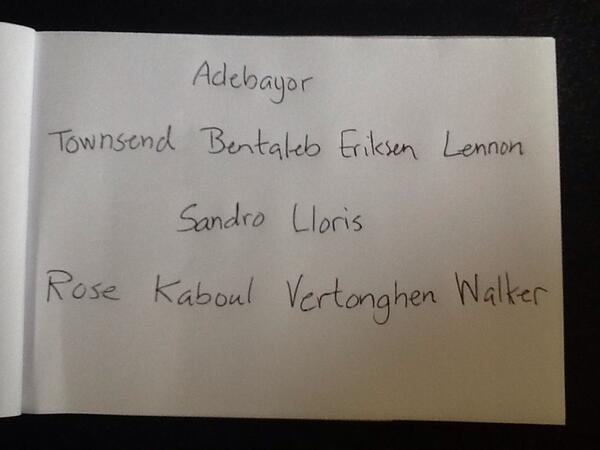 Adebayor
Townsend Bentaleb Eriksen Lennon
Sandro Lloris
Rose Kaboul Vertonghen Walker